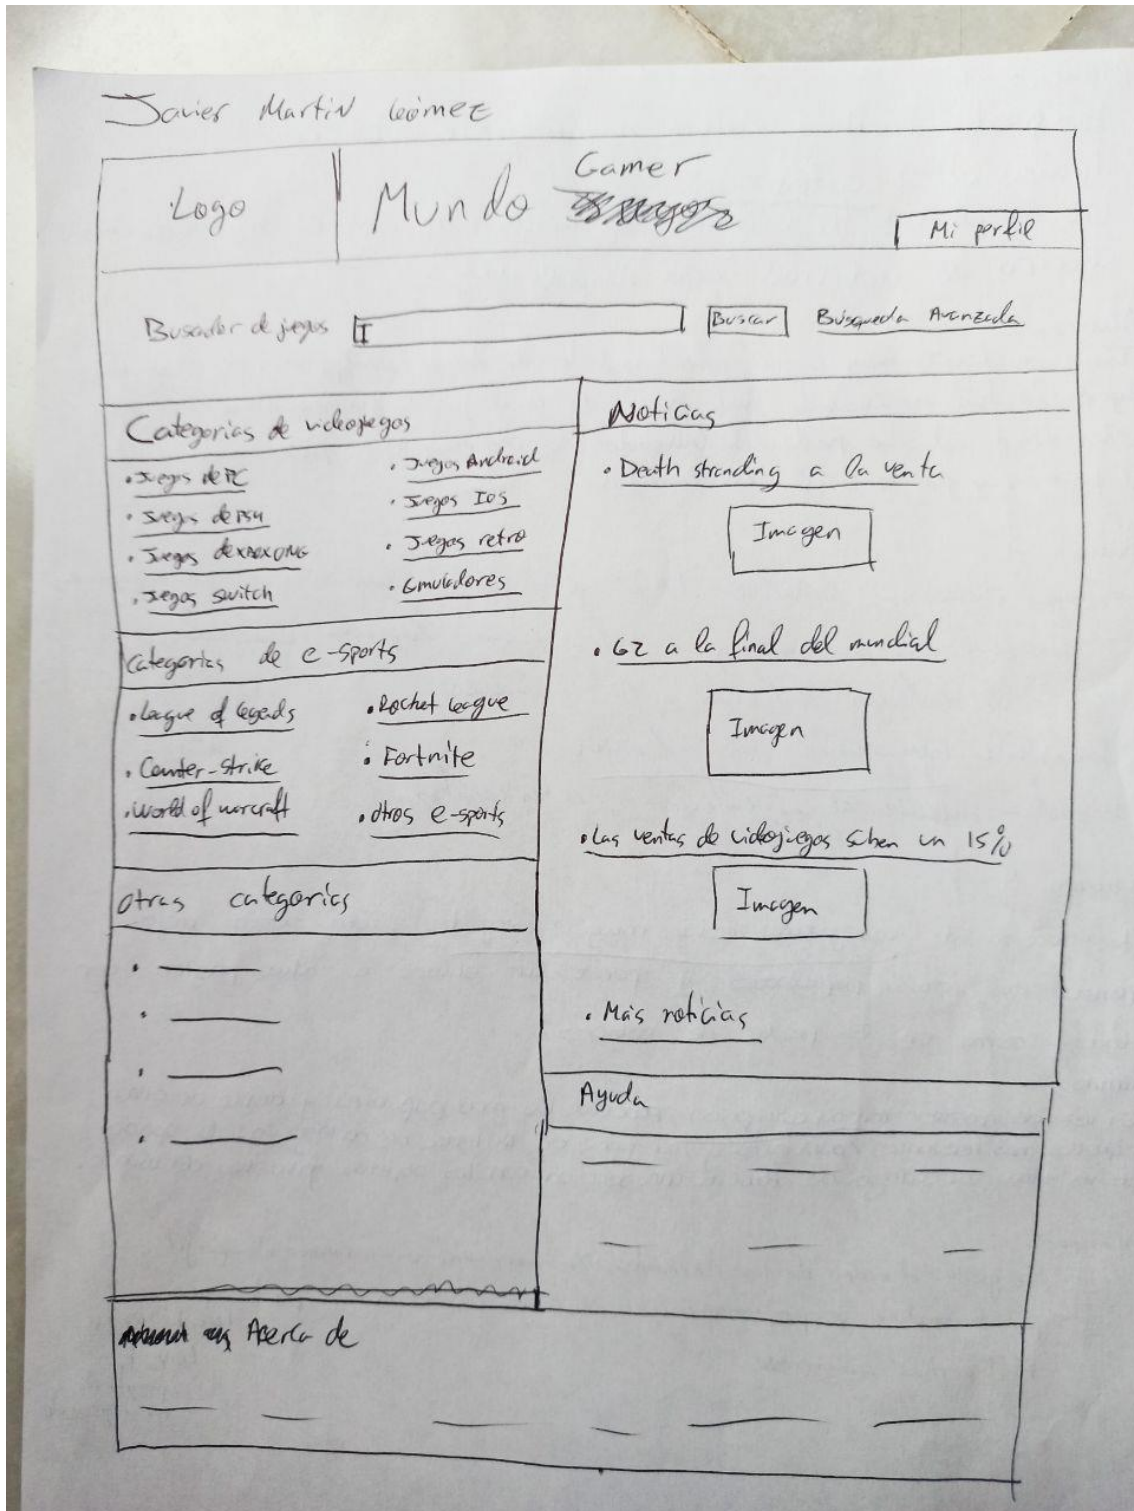 Javier Martin Gómez
Logo
Mundo Gamer
Mi perfil
Buscador de juegos
Buscar
Búsqueda Avanzada
Categorias de videojuegos
• Juegos de PC
• Juegos de PS4
• Juegos de XBOX ONE
• Juegos switch
• Juegos Android
• Juegos IOS
• Juegos retro
• Emuladores
Categorias de e-sports
• League of legends
• Counter-Strike
• World of warcraft
• Rocket league
• Fortnite
• Otros e-sports
Otras categorias
Noticias
• Death stranding a la venta
Imagen
• G2 a la final del mundial
Imagen
• Las ventas de videojuegos suben un 15%
Imagen
• Más noticias
Ayuda
Acerca de